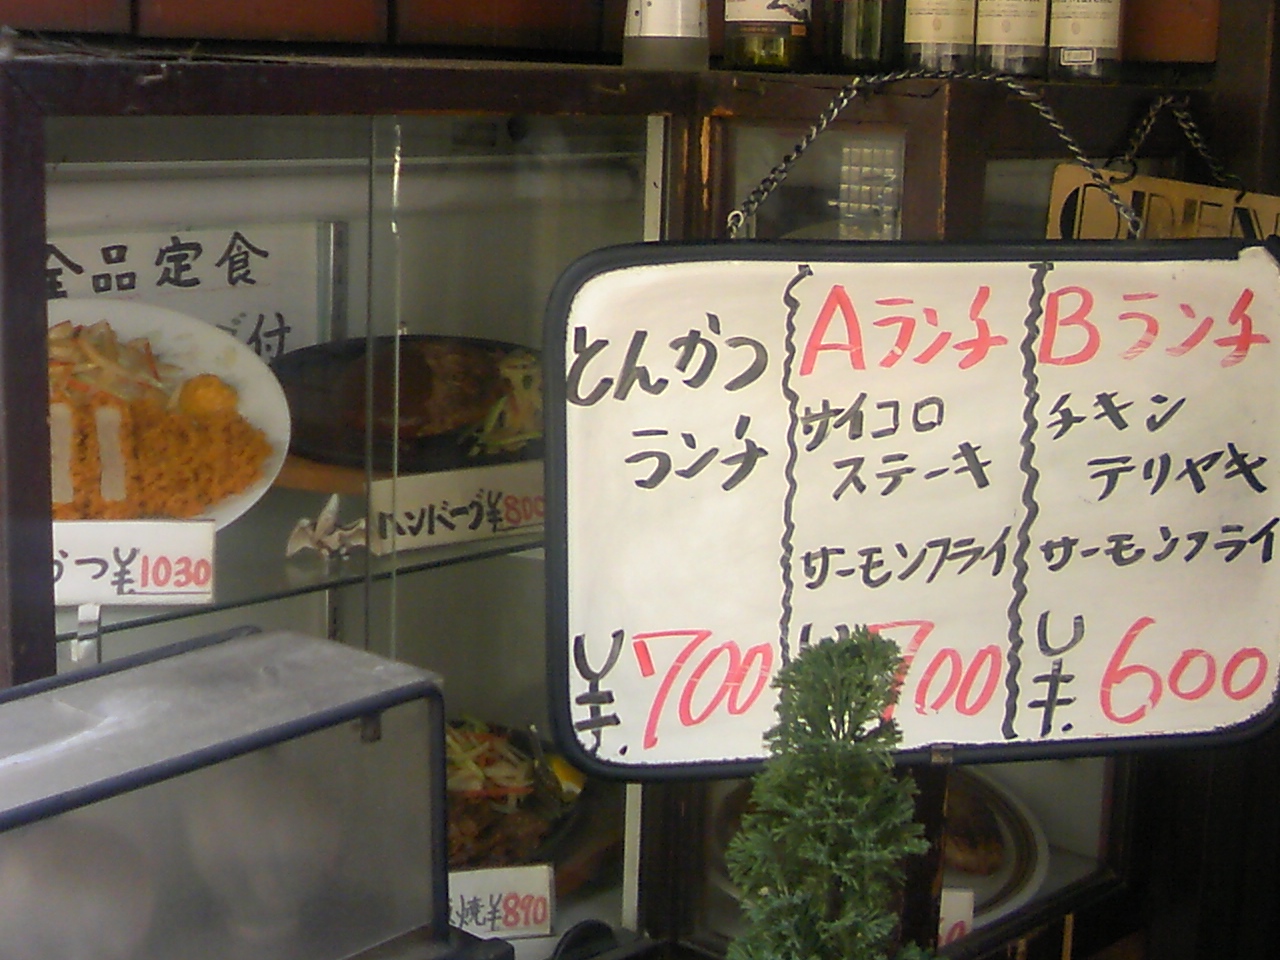 全品定食
付
かつ¥1030
ハンバーグ¥800
焼¥890
とんかつ
ランチ
¥700
Aランチ
サイコロ
ステーキ
サーモンフライ
¥700
Bランチ
チキン
テリヤキ
サーモンフライ
¥600
OPEN